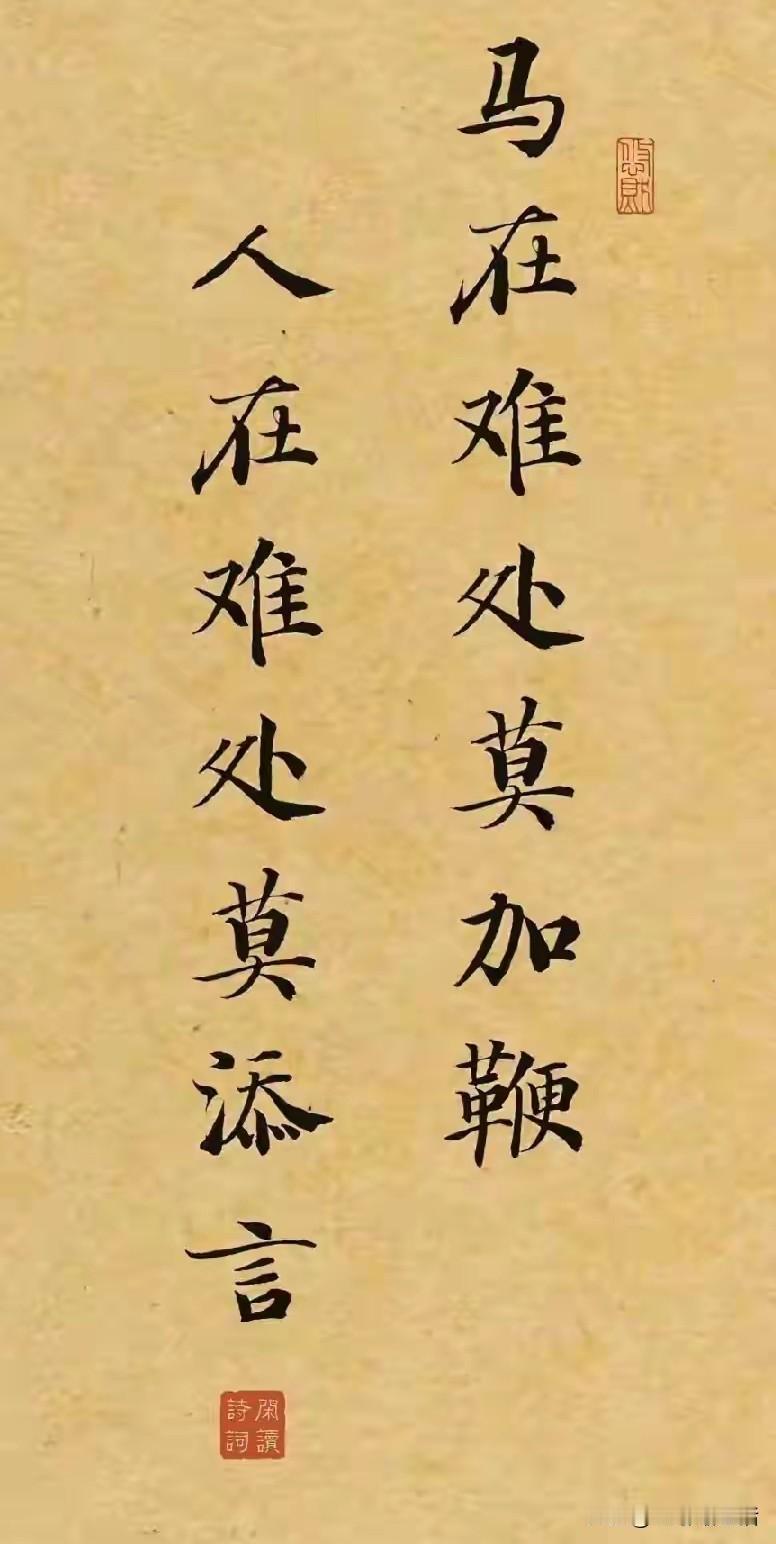 马在难处莫加鞭
人在难处莫添言
闲讀
詩詞